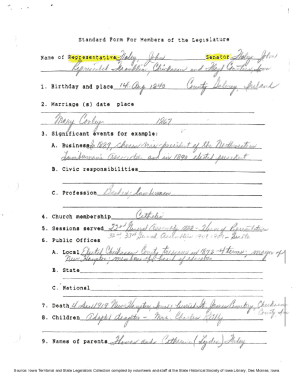 Standard Form For Members of the Legislature
Name of Representative Foley, John Senator Foley, John
Represented Franklin, Chickasaw and Floyd Counties, Iowa
1. Birthday and place 14 Aug 1840 County Galway, Ireland
2. Marriage (s) date place
Mary Conley 1867
3. Significant events for example:
A. Business 1889, chosen vice-president of the Northwestern
Lumberman's Association and in 1890 elected president
B. Civic responsibilities
C. Profession lumberman
4. Church membership Catholic
5. Sessions served 22nd General Assembly 1888 -
6. Public Offices
A. Local Elected Chickasaw County treasurer in 1872 - terms, mayor of
New Hampton, member of
B. State
C. National
7. Death 4 1918 New Hampton, Iowa, Chickasaw
County
8. Children Adopted daughter - Mrs. Charles
9. Names of parents Thomas and Catherine (Lyden) Foley
Source: Iowa Territorial and State Legislators Collection compiled by volunteers and staff at the State Historical Society of Iowa Library, Des Moines, Iowa.